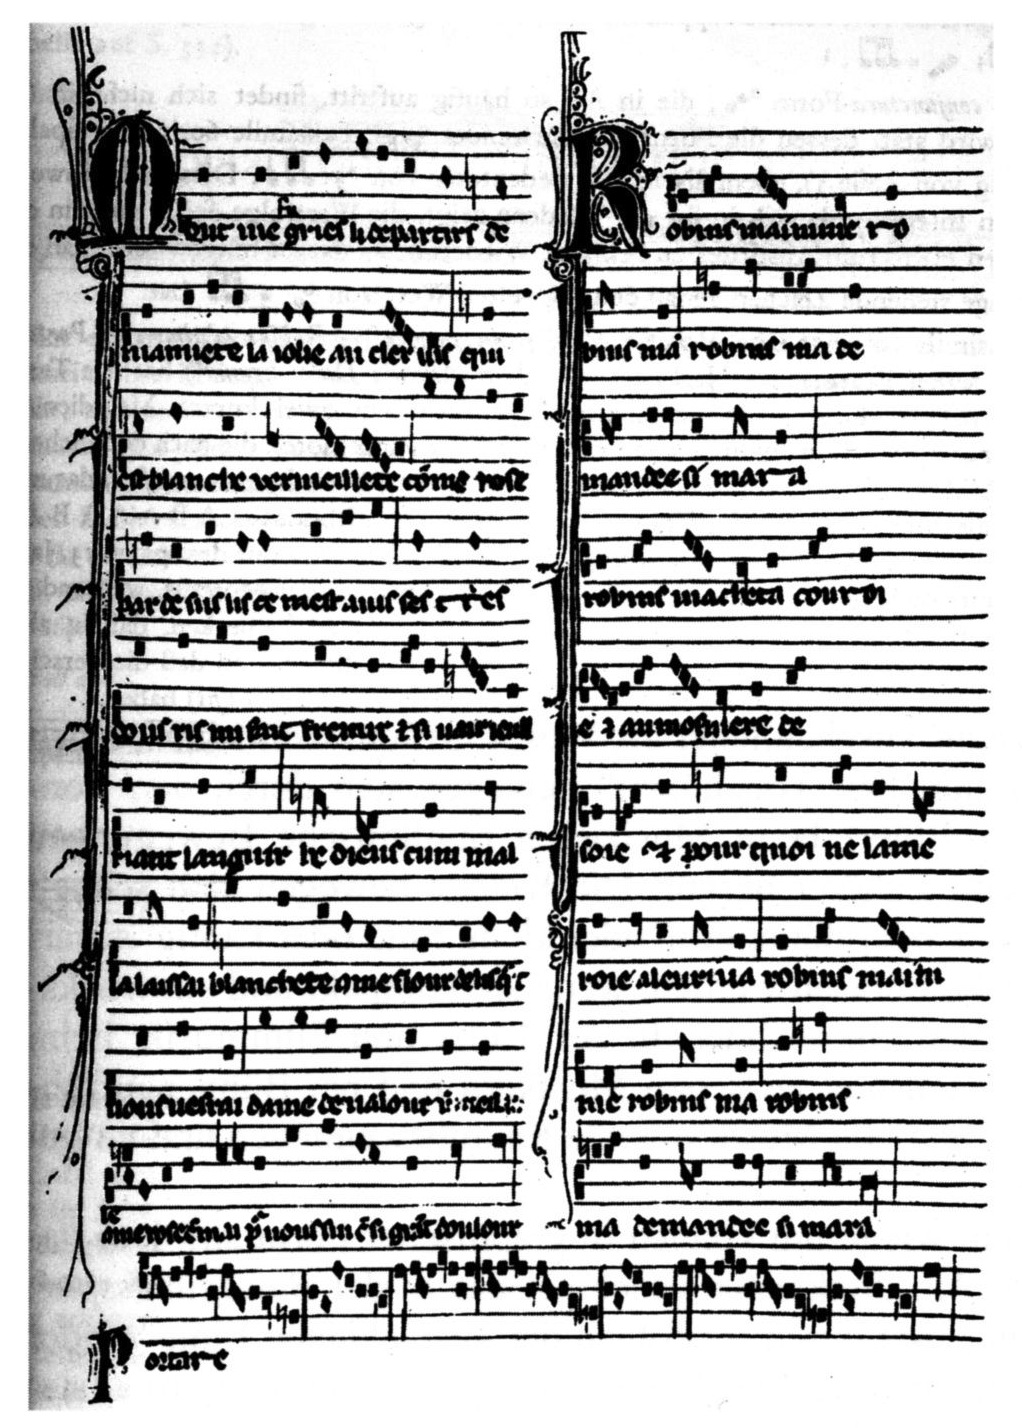 Mout me fu gries li departirs de
mamiete la iolie au cler uis qui
est blanche vermeillete cõme rose
par desus lis ce mest auis ses
dous ris mi fait fremir & si uair
riant languir he dieus cum mal
la laissai blanchete cõme flour de lis
uous uerrai dame de ualour
cõme rose uous sui doulour
Robins maimme ro
bins ma robins ma de
mandee si mar a
robins macheta couroi
e & aumosniere de
soie & pour quoi ne lame
roie aleuriua robins maim
me robins ma robins
ma demandee si mara
Portare